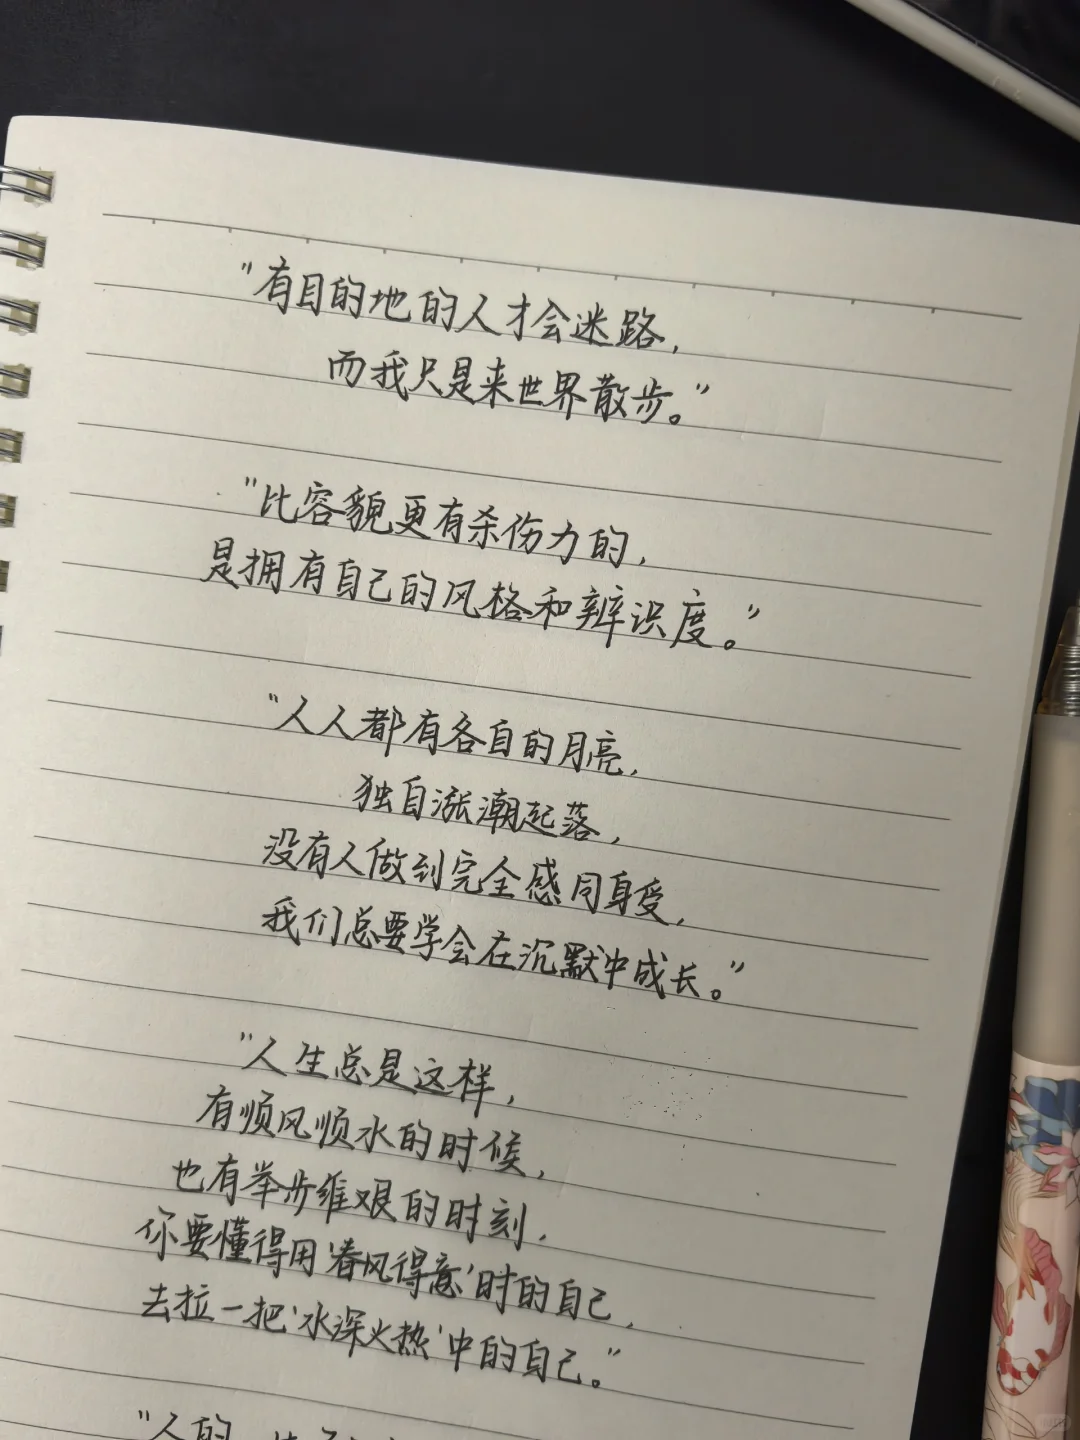 "有目的地的人才会迷路，
而我只是来世界散步。"
"比容貌更有杀伤力的，
是拥有自己的风格和辨识度。"
"人人都有各自的月亮，
独自涨潮起落，
没有人做到完全感同身受，
我们总要学会在沉默中成长。"
"人生总是这样，
有顺风顺水的时候，
也有举步维艰的时刻，
你要懂得用'春风得意'时的自己，
去拉一把'水深火热'中的自己。"
"人的